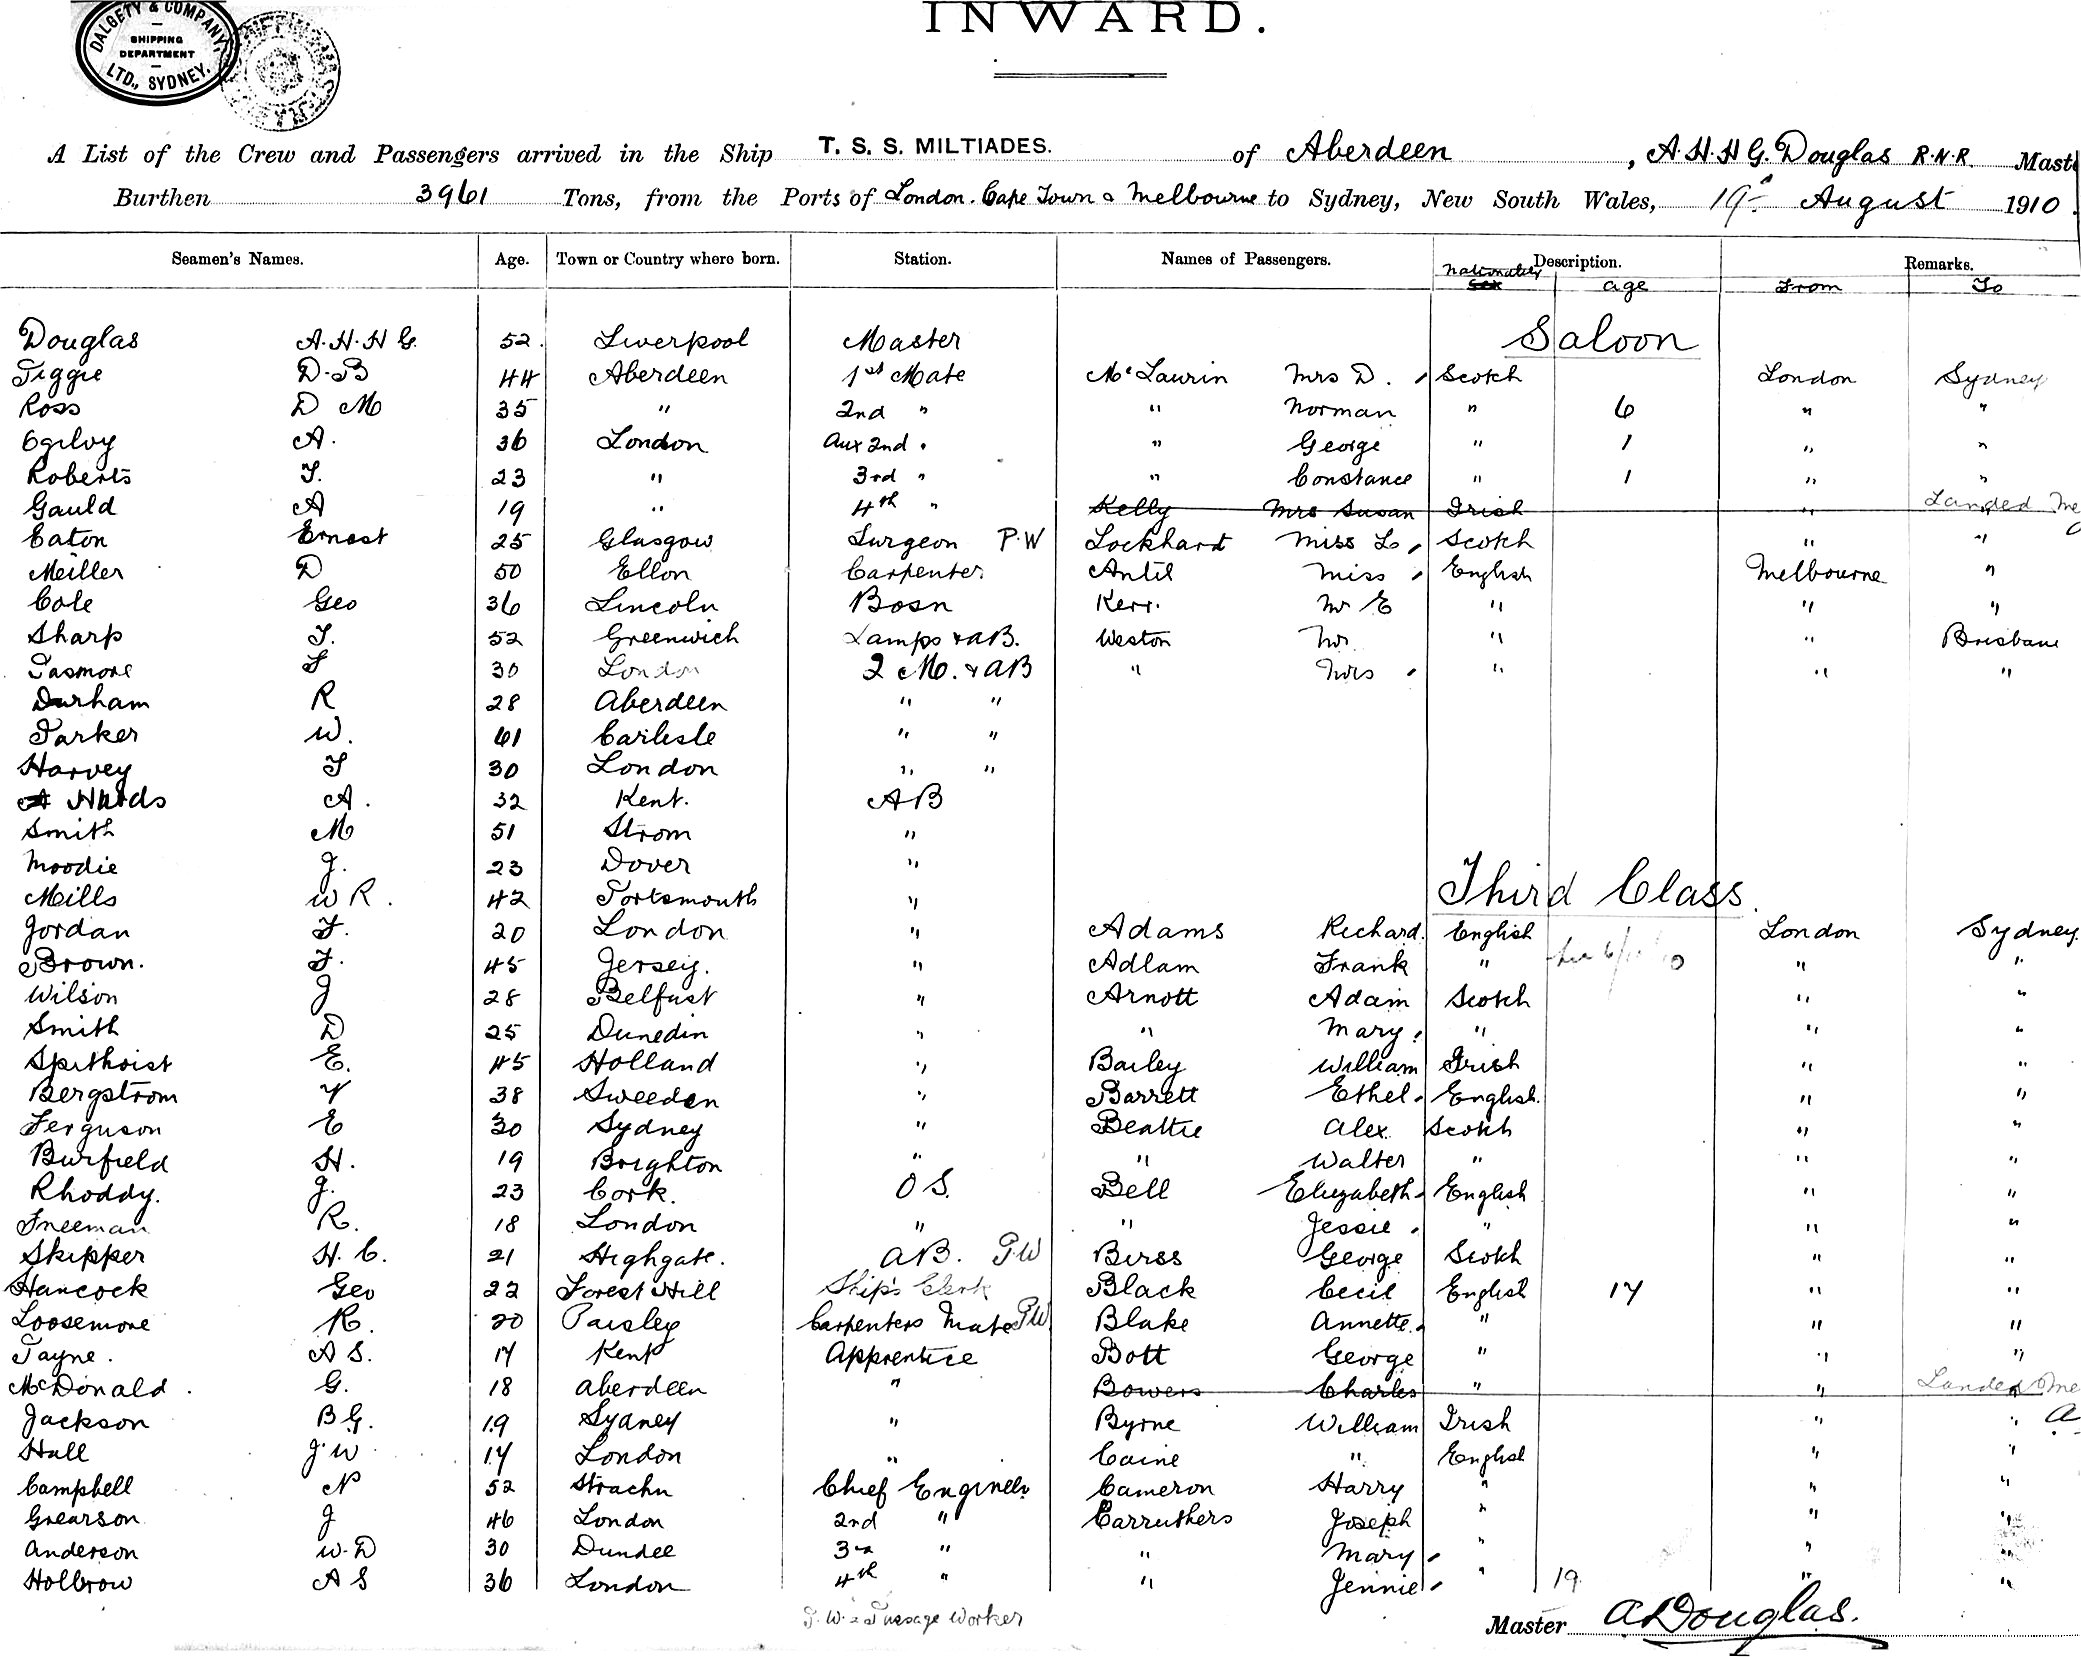 DALGETY & COMPANY,
SHIPPING
DEPARTMENT
LTD., SYDNEY.
INWARD.
A List of the Crew and Passengers arrived in the Ship T. S. S. MILTIADES. of Aberdeen, A. H. H G. Douglas R.N.R. Mast
Burthen 3961 Tons, from the Ports of London. Cape Town & Melbourne to Sydney, New South Wales, 19th August 1910.
Seamen's Names. Age. Town or Country where born. Station. Names of Passengers. Description. Remarks.
Nationality Sex age From To
Saloon
Douglas A. H. H G. 52. Liverpool Master
Tiggie D. B 44 Aberdeen 1st Mate McLaurin Mrs D. Scotch London Sydney
Ross D M 35 " 2nd " " Norman " 6 " "
Ogilvy A. 36 London Aux 2nd " " George " 1 " "
Roberts T. 23 " 3rd " " Constance " 1 " "
Gauld A 19 " 4th " Kelly Mrs Susan Irish " Landed Me
Eaton Ernest 25 Glasgow Surgeon P.W Lockhard Miss L. Scotch " "
Meiller D 50 Ellon Carpenter Antil Miss English Melbourne "
Cole Geo 36 Lincoln Bosn Kerr. Mr E " " "
Sharp T. 52 Greenwich Lamps & AB. Weston Mr. " " Brisbane
Pasmore F 30 London 2 M. & AB " Mrs " " "
Durham R 28 Aberdeen " "
Parker W. 61 Carlisle " "
Harvey F 30 London " "
Hards A. 32 Kent. AB
Smith M 51 Strom "
Moodie J. 23 Dover "
Third Class
Mills W R. 42 Portsmouth "
Jordan F. 20 London " Adams Richard English London Sydney.
Brown. F. 45 Jersey. " Adlam Frank " " "
Wilson J 28 Belfast " Arnott Adam Scotch " "
Smith D 25 Dunedin " " Mary " " "
Spithoist E. 45 Holland " Bailey William Irish " "
Bergstrom Y 38 Sweeden " Barrett Ethel English. " "
Ferguson E 30 Sydney " Beattie Alex Scotch " "
Burfield H. 19 Brighton " " Walter " " "
Rhoddy. J. 23 Cork. O S. Bell Elizabeth English " "
Freeman R. 18 London " " Jessie " " "
Skipper H. C. 21 Highgate. AB. P.W Birss George Scotch " "
Hancock Geo 22 Forest Hill Ship's Clerk Black Cecil English 17 " "
Loosemore R. 20 Paisley Carpenters Mate P.W Blake Annette " " "
Payne. A S. 17 Kent Apprentice Bott George " " "
McDonald. G. 18 Aberdeen " Bowers Charles " " Landed Me
Jackson B G. 19 Sydney " Byrne William Irish " "
Hall J. W 17 London " Caine " English " "
Campbell N 52 Strachn Chief Engineer Cameron Harry " " "
Grearson J 46 London 2nd " Carruthers Joseph " " "
Anderson W. D 30 Dundee 3rd " " Mary " " "
Holbrow A S 36 London 4th " " Jennie " 19 " "
P. W. = Passage Worker
Master A Douglas.